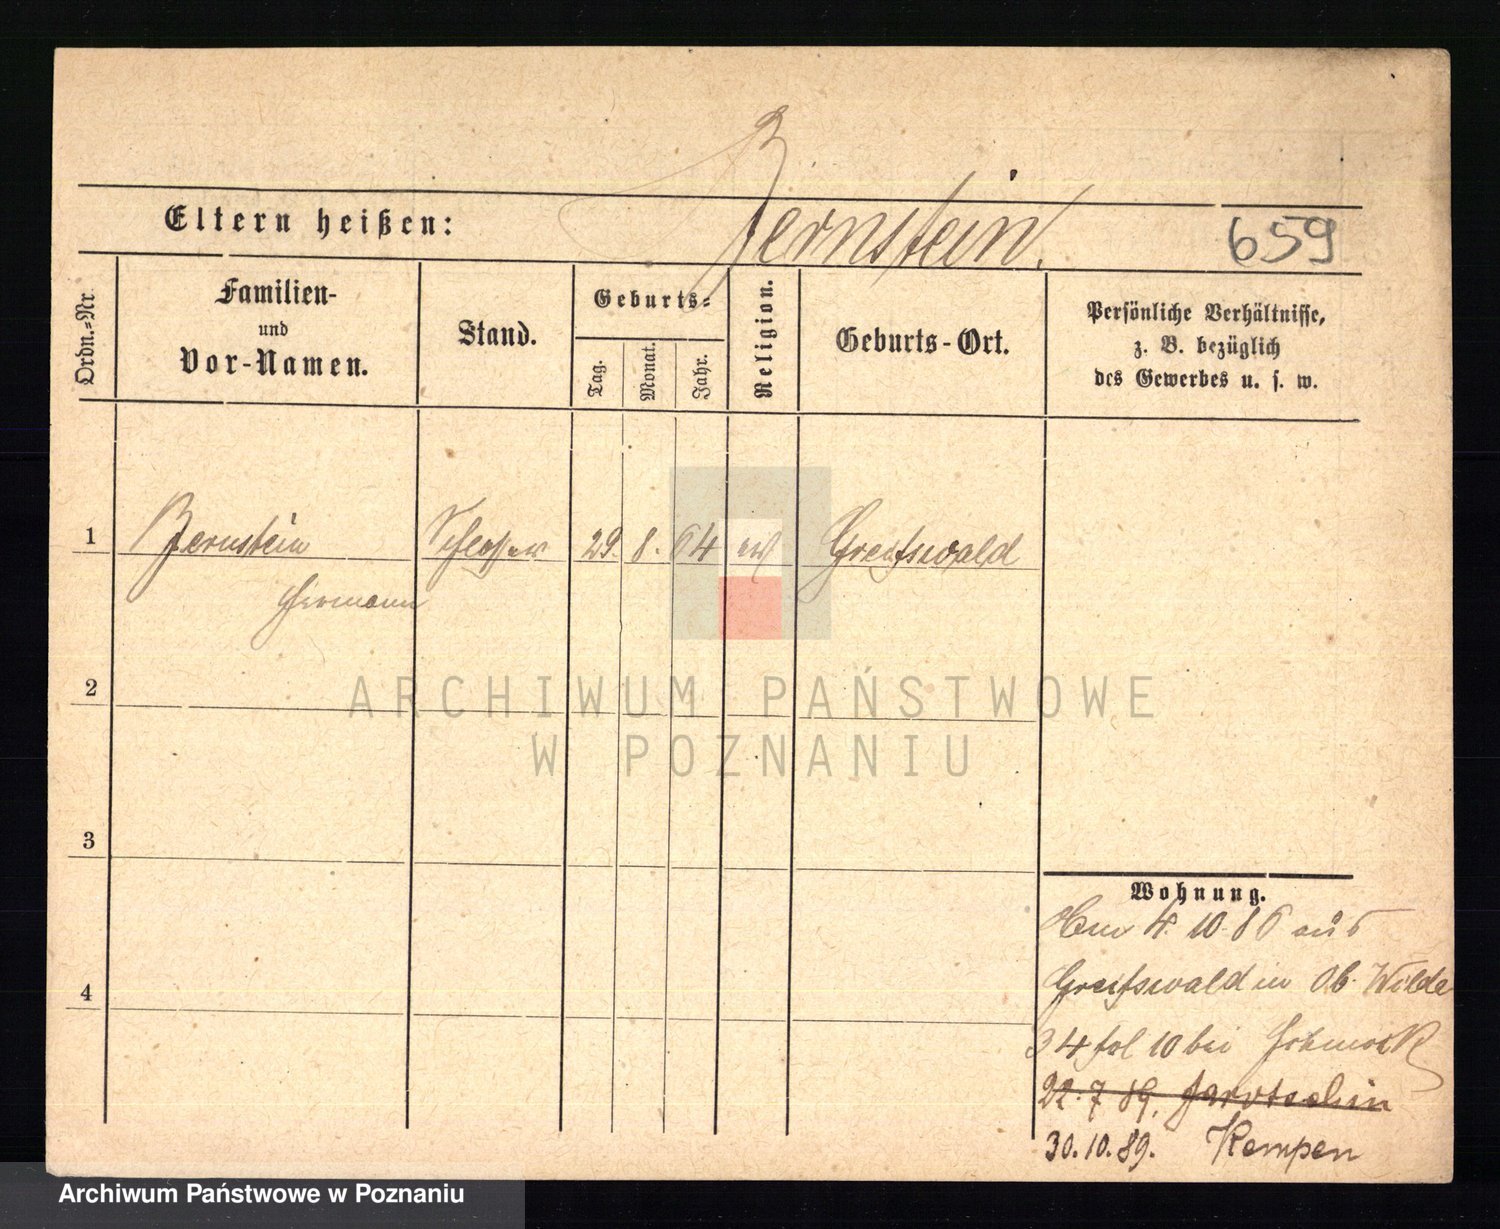 Bernstein.
Eltern heißen:
659
Ordn.=Nr.
Familien-
und
Vor-Namen.
Stand.
Geburts=
Tag.
Monat.
Jahr.
Religion.
Geburts-Ort.
Persönliche Verhältnisse,
z. B. bezüglich
des Gewerbes u. s. w.
1 Bernstein Schlosser 29. 8. 64 ev Greifswald
Hermann
2
3
4
Wohnung.
4. 10. 86 aus
Greifswald in Ob. Wilda
34 fol 10 bei
22. 7. 89. Jarotschin
30. 10. 89. Kempen
ARCHIWUM PAŃSTWOWE
W POZNANIU
Archiwum Państwowe w Poznaniu